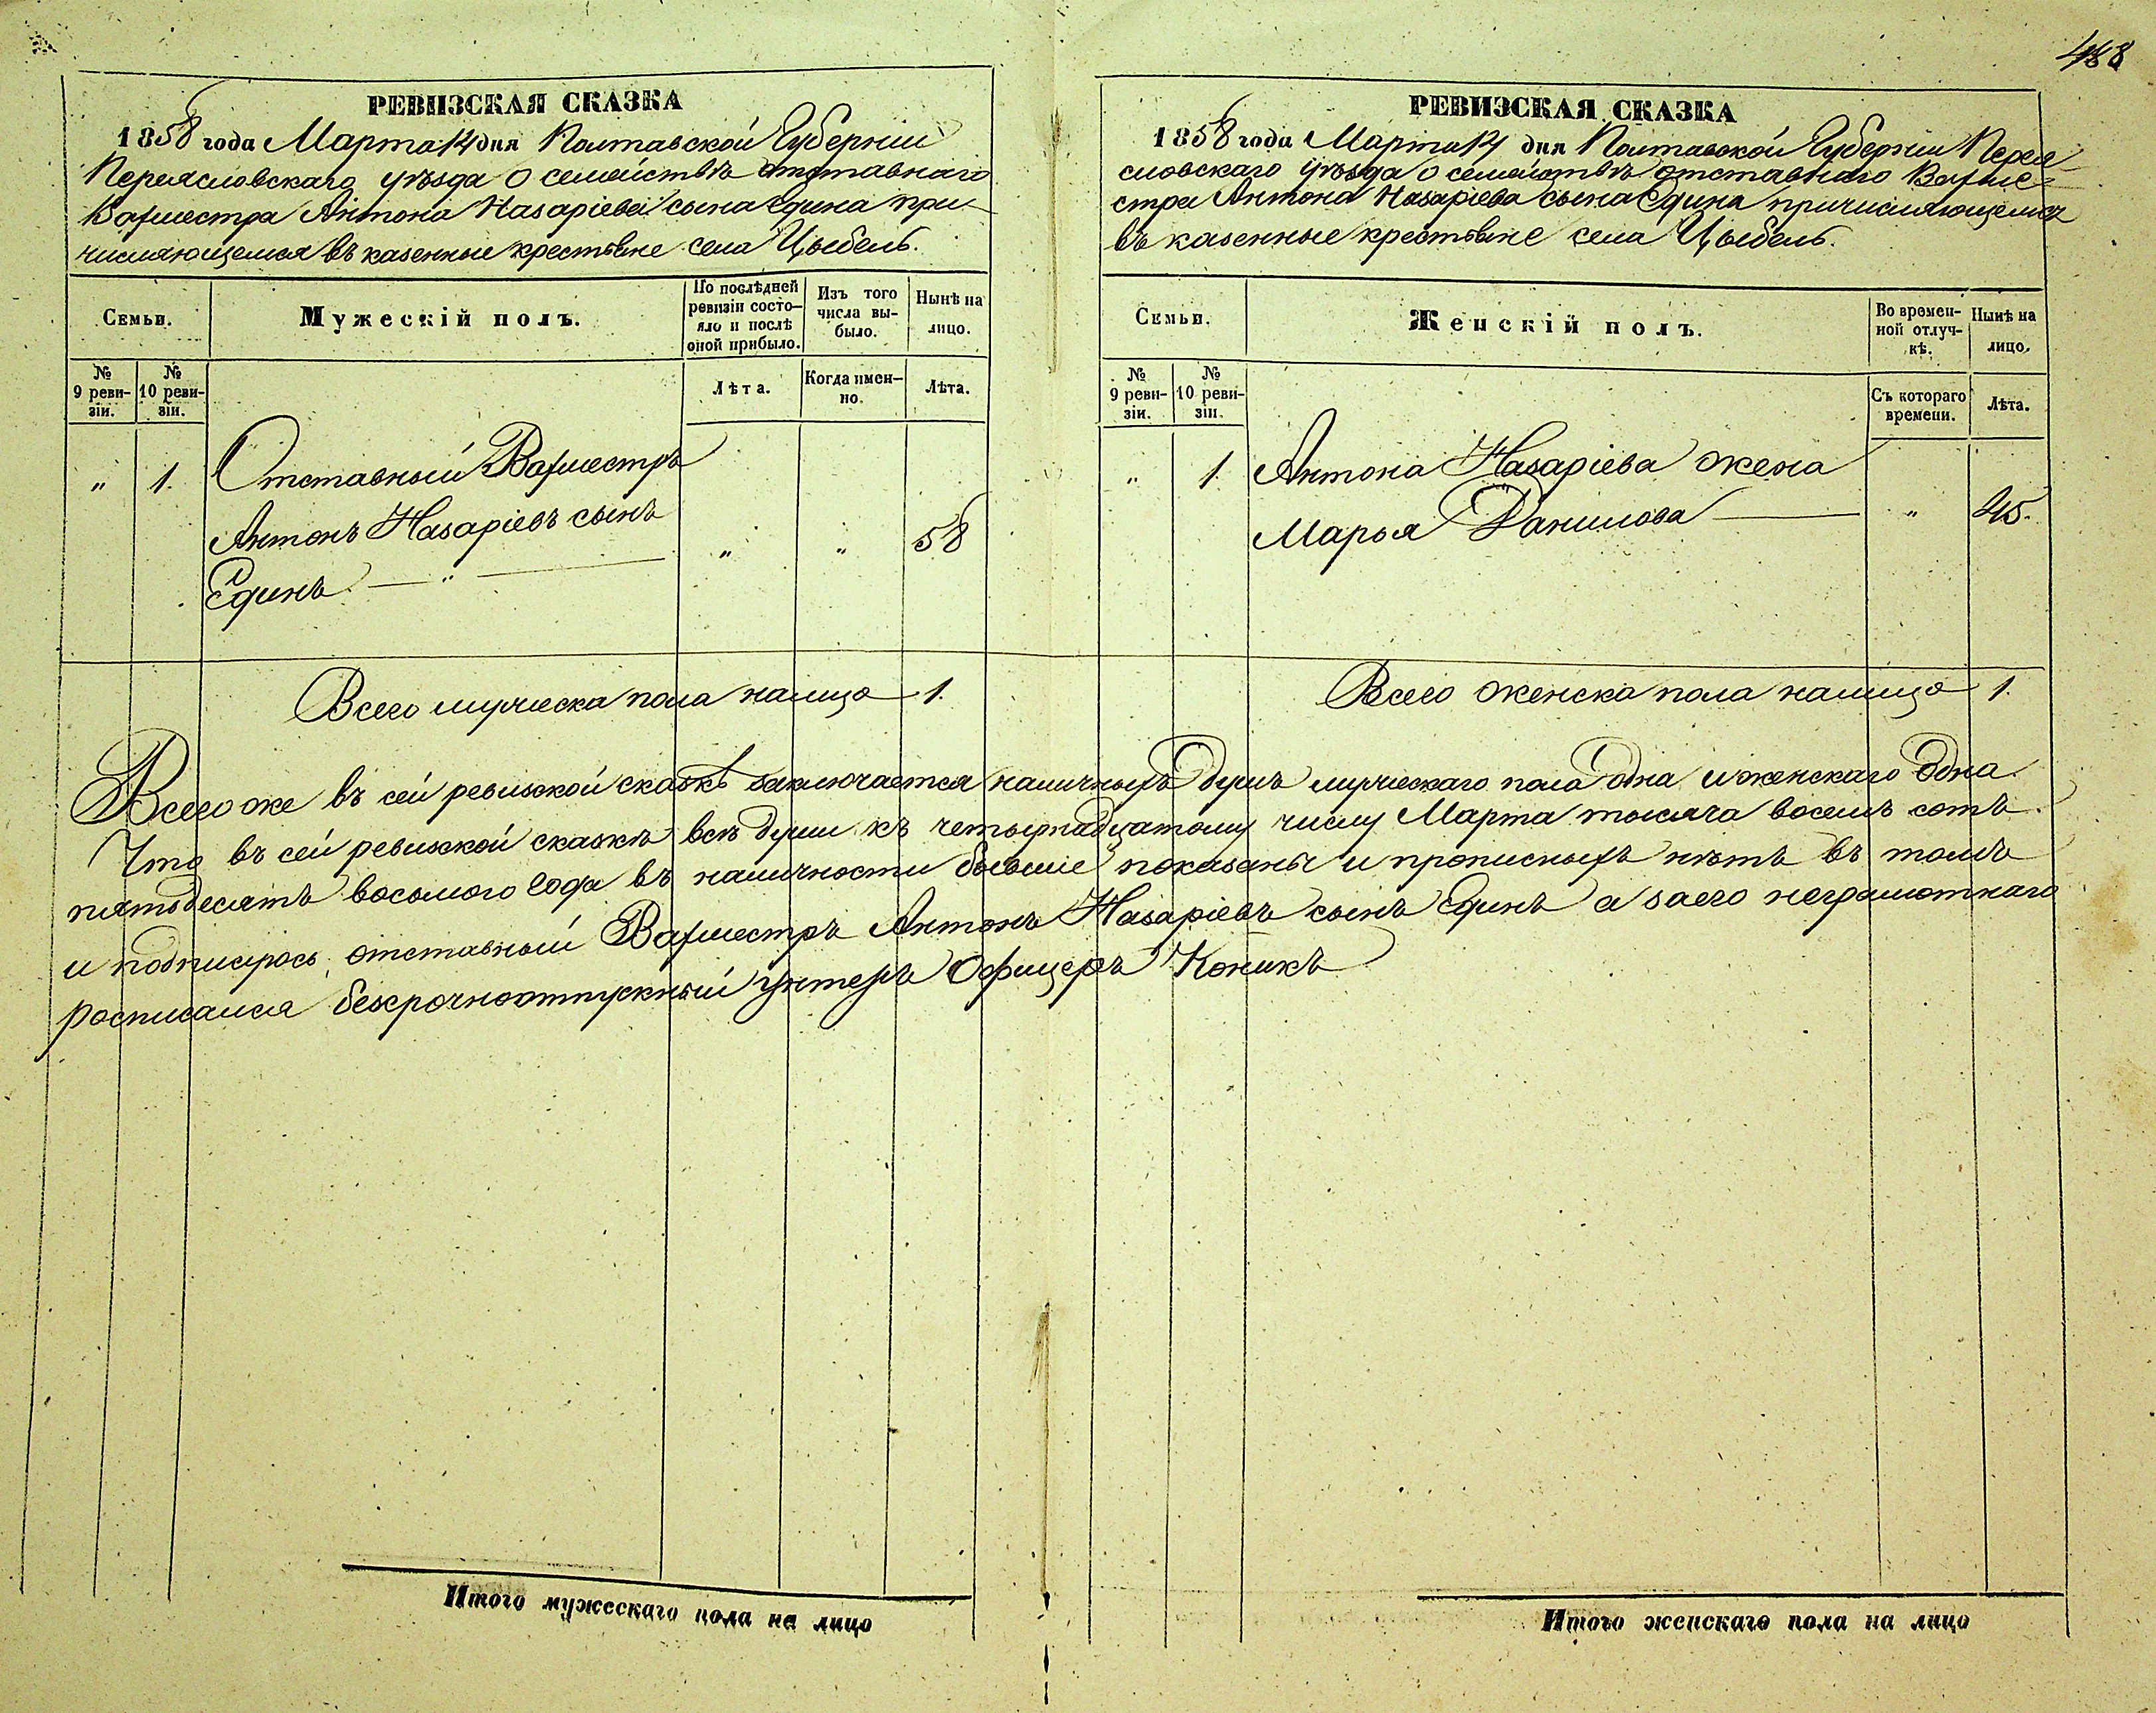 488
РЕВИЗСКАЯ СКАЗКА
1858 года Марта 14 дня Полтавской Губерніи
Переясловскаго уѣзда о семействѣ отставнаго
Вахмистра Антона Назаріева сына Едина при-
числяющемся въ казенные крестьяне села Цыбель.
Семьи.
Мужескій полъ.
По послѣдней ревизіи состо-
яло и послѣ оной прибыло.
Изъ того числа вы-
было.
Нынѣ на лицо.
№ 9 реви-
зіи.
№ 10 реви-
зіи.
Лѣта.
Когда имен-
но.
Лѣта.
„ 1. Отставный Вахместръ
Антонъ Назаріевъ сынъ
Единъ — „ — „ „ 58
Всего мужеска пола налицо 1.
РЕВИЗСКАЯ СКАЗКА
1858 года Марта 14 дня Полтавской Губерніи Перея-
словскаго уѣзда о семействѣ отставнаго Вахме-
стра Антона Назаріева сына Едина причисляющемся
въ казенные крестьяне села Цыбель.
Семьи.
Женскій полъ.
Во времен-
ной отлуч-
кѣ.
Нынѣ на лицо.
№ 9 реви-
зіи.
№ 10 реви-
зіи.
Съ котораго времени.
Лѣта.
„ 1 Антона Назаріева жена
Марья Данилова — „ 45.
Всего женска пола налицо 1.
Всего же въ сей ревизской сказкѣ заключается наличныхъ душъ мужескаго пола одна и женскаго одна.
Что въ сей ревизской сказкѣ всѣ души къ четырнадцатому числу Марта тысяча восемъ сотъ
пятьдесятъ восьмого года въ наличности бывшіе показаны и прописныхъ нѣтъ въ томъ
и подписуюсь отставный Вахместръ Антонъ Назаріевъ сынъ Единъ а за его неграмотнаго
росписался безсрочноотпускный унтеръ Офицеръ Коникъ
Итого мужескаго пола на лицо
Итого женскаго пола на лицо